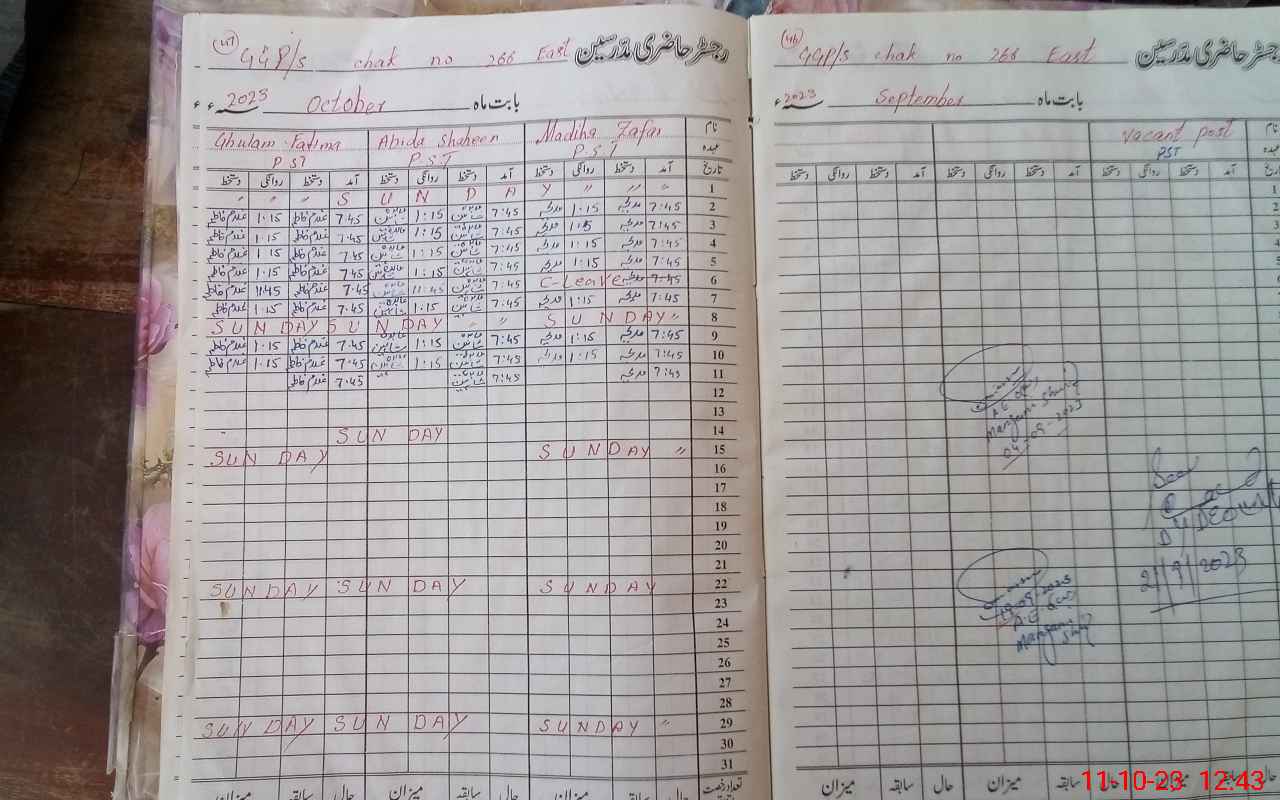 47 GGP/s chak no 266 East رجسٹر حاضری مدرسین
2023 سنہ ء October بابت ماہ
Ghulam Fatima Abida Shaheen Madiha Zafar نام
PST P.S.T P.S.T عہدہ
دستخط روانگی دستخط آمد دستخط روانگی دستخط آمد دستخط روانگی دستخط آمد تاریخ
" " " S U N D A Y " " " 1
غلام فاطمہ 1.15 غلام فاطمہ 7.45 عابدہ شاہین 1:15 عابدہ شاہین 7:45 مدیحہ 1.15 مدیحہ 7:45 2
غلام فاطمہ 1.15 غلام فاطمہ 7.45 عابدہ شاہین 1:15 عابدہ شاہین 7:45 مدیحہ 1:15 مدیحہ 7:45 3
غلام فاطمہ 1.15 غلام فاطمہ 7.45 عابدہ شاہین 1:15 عابدہ شاہین 7:45 مدیحہ 1:15 مدیحہ 7:45 4
غلام فاطمہ 1.15 غلام فاطمہ 7.45 عابدہ شاہین 1:15 عابدہ شاہین 7:45 مدیحہ 1:15 مدیحہ 7:45 5
غلام فاطمہ 11.45 غلام فاطمہ 7.45 عابدہ شاہین 11:45 عابدہ شاہین 7:45 C-Leave مدیحہ 7:45 6
غلام فاطمہ 1.15 غلام فاطمہ 7.45 عابدہ شاہین 1.15 عابدہ شاہین 7:45 مدیحہ 1:15 مدیحہ 7:45 7
SUNDAY SUNDAY " " SUNDAY " 8
غلام فاطمہ 1.15 غلام فاطمہ 7.45 عابدہ شاہین 1:15 عابدہ شاہین 7:45 مدیحہ 1:15 مدیحہ 7:45 9
غلام فاطمہ 1.15 غلام فاطمہ 7.45 عابدہ شاہین 1:15 عابدہ شاہین 7:45 مدیحہ 1:15 مدیحہ 7:45 10
غلام فاطمہ 7.45 عابدہ شاہین 7:45 مدیحہ 7:45 11
12
13
SUN DAY 14
SUN DAY SUNDAY " 15
16
17
18
19
20
21
SUNDAY SUN DAY SUNDAY 22
23
24
25
26
27
28
SUN DAY SUN DAY SUNDAY " 29
30
31
میزان سابقہ حال میزان سابقہ حال میزان سابقہ حال تعداد رخصت
46 GGP/s chak no 266 East رجسٹر حاضری مدرسین
2023 سنہ ء September بابت ماہ
Vacant post نام
PST عہدہ
دستخط روانگی دستخط آمد دستخط روانگی دستخط آمد دستخط روانگی دستخط آمد تاریخ
04-09-2023
19-09-2023
21/9/2023
میزان سابقہ حال میزان سابقہ حال میزان سابقہ حال
11-10-23 12:43